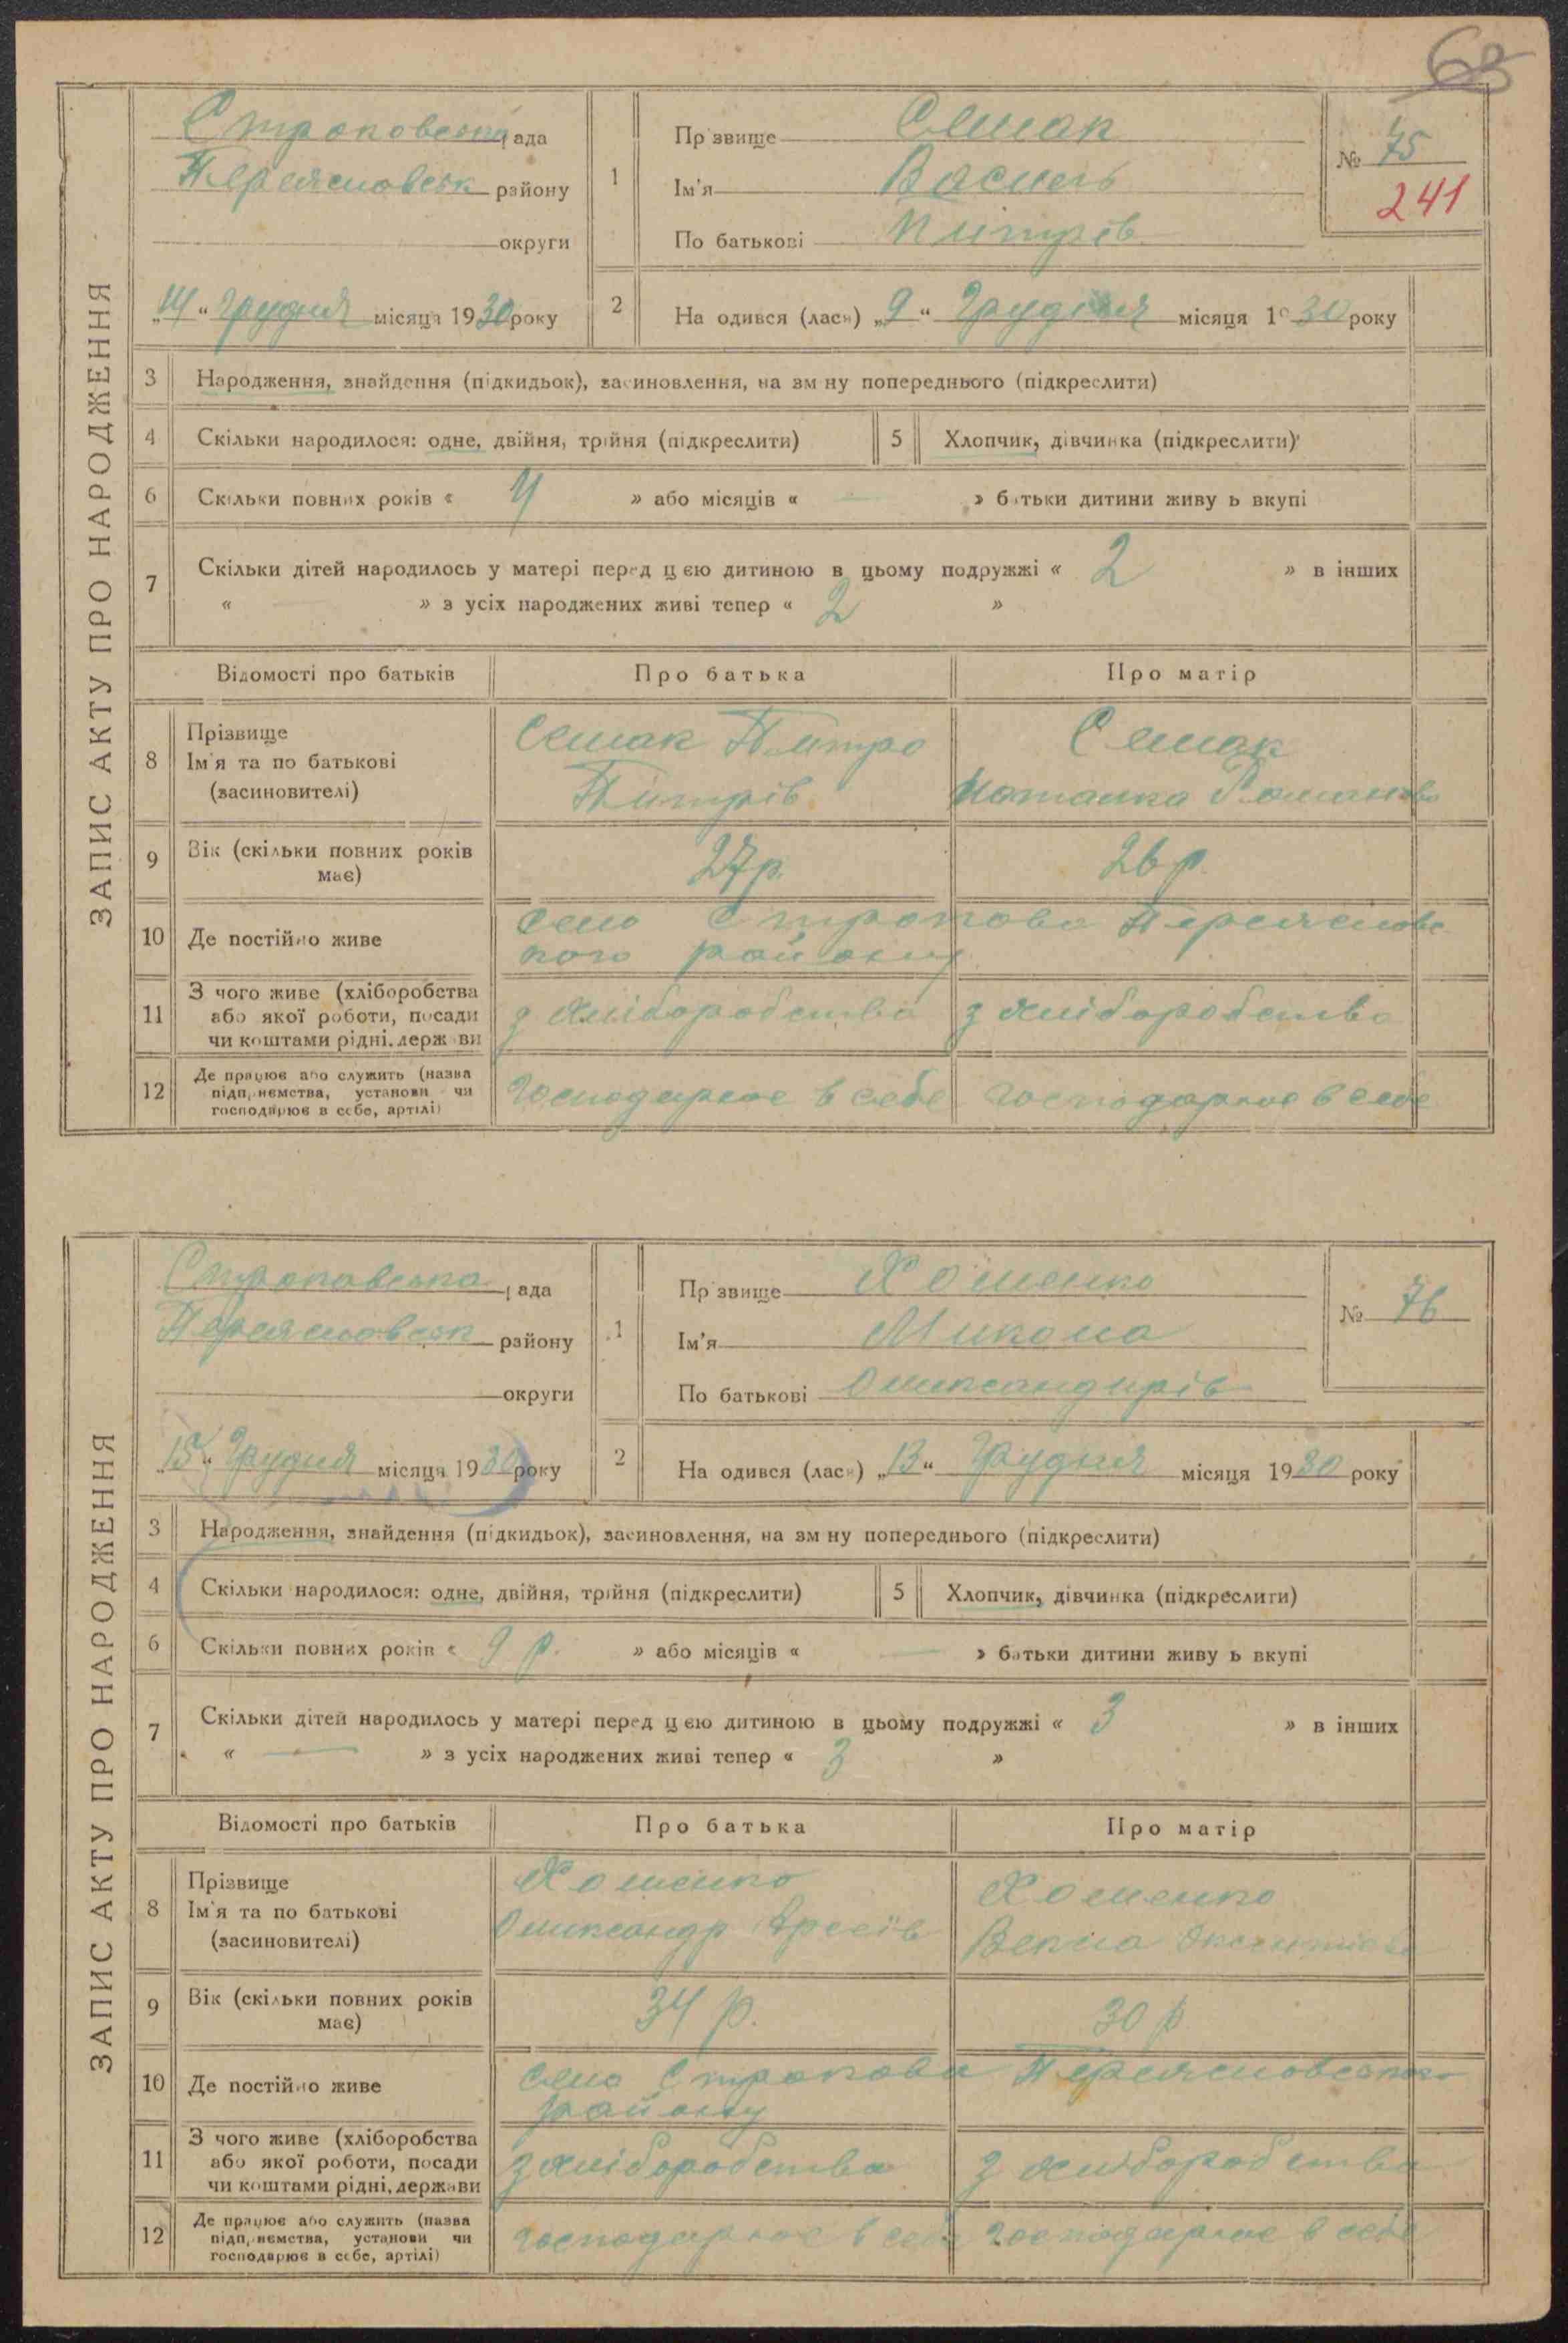 68
ЗАПИС АКТУ ПРО НАРОДЖЕННЯ
Строковська рада
Переяславськ району
округи
1
Прізвище Семак
Ім'я Василь
По батькові Питрів
№ 75
241
"14" Грудня місяця 1930 року
2
Народився (лася) "9" Грудня місяця 1930 року
3 Народження, знайдення (підкидьок), засиновлення, на зміну попереднього (підкреслити)
4 Скільки народилося: одне, двійня, трійня (підкреслити)
5 Хлопчик, дівчинка (підкреслити)
6 Скільки повних років « 4 » або місяців « — » батьки дитини живуть вкупі
7 Скільки дітей народилось у матері перед цією дитиною в цьому подружжі « 2 » в інших
« — » з усіх народжених живі тепер « 2 »
Відомості про батьків Про батька Про матір
8 Прізвище
Ім'я та по батькові
(засиновителі)
Семак Питро
Питрів
Семак
Наталка Романова
9 Вік (скільки повних років має)
27р. 26 р.
10 Де постійно живе
село Строкова Переяславс
кого району
11 З чого живе (хліборобства
або якої роботи, посади
чи коштами рідні, держави
з хліборобства з хліборобства
12 Де працює або служить (назва
підприємства, установи чи
господарює в себе, артілі)
господарює в себе господарює в себе
ЗАПИС АКТУ ПРО НАРОДЖЕННЯ
Строковська рада
Переяславськ району
округи
1
Прізвище Хоменко
Ім'я Микола
По батькові Олександирів
№ 76
"15" Грудня місяця 1930 року
2
Народився (лася) "13" Грудня місяця 1930 року
3 Народження, знайдення (підкидьок), засиновлення, на зміну попереднього (підкреслити)
4 Скільки народилося: одне, двійня, трійня (підкреслити)
5 Хлопчик, дівчинка (підкреслити)
6 Скільки повних років « 9 р. » або місяців « — » батьки дитини живуть вкупі
7 Скільки дітей народилось у матері перед цією дитиною в цьому подружжі « 3 » в інших
« — » з усіх народжених живі тепер « 3 »
Відомості про батьків Про батька Про матір
8 Прізвище
Ім'я та по батькові
(засиновителі)
Хоменко
Олександр
Хоменко
9 Вік (скільки повних років має)
34 р. 30 р.
10 Де постійно живе
село Строкова Переяславського
району
11 З чого живе (хліборобства
або якої роботи, посади
чи коштами рідні, держави
з хліборобства з хліборобства
12 Де працює або служить (назва
підприємства, установи чи
господарює в себе, артілі)
господарює в себе господарює в себе